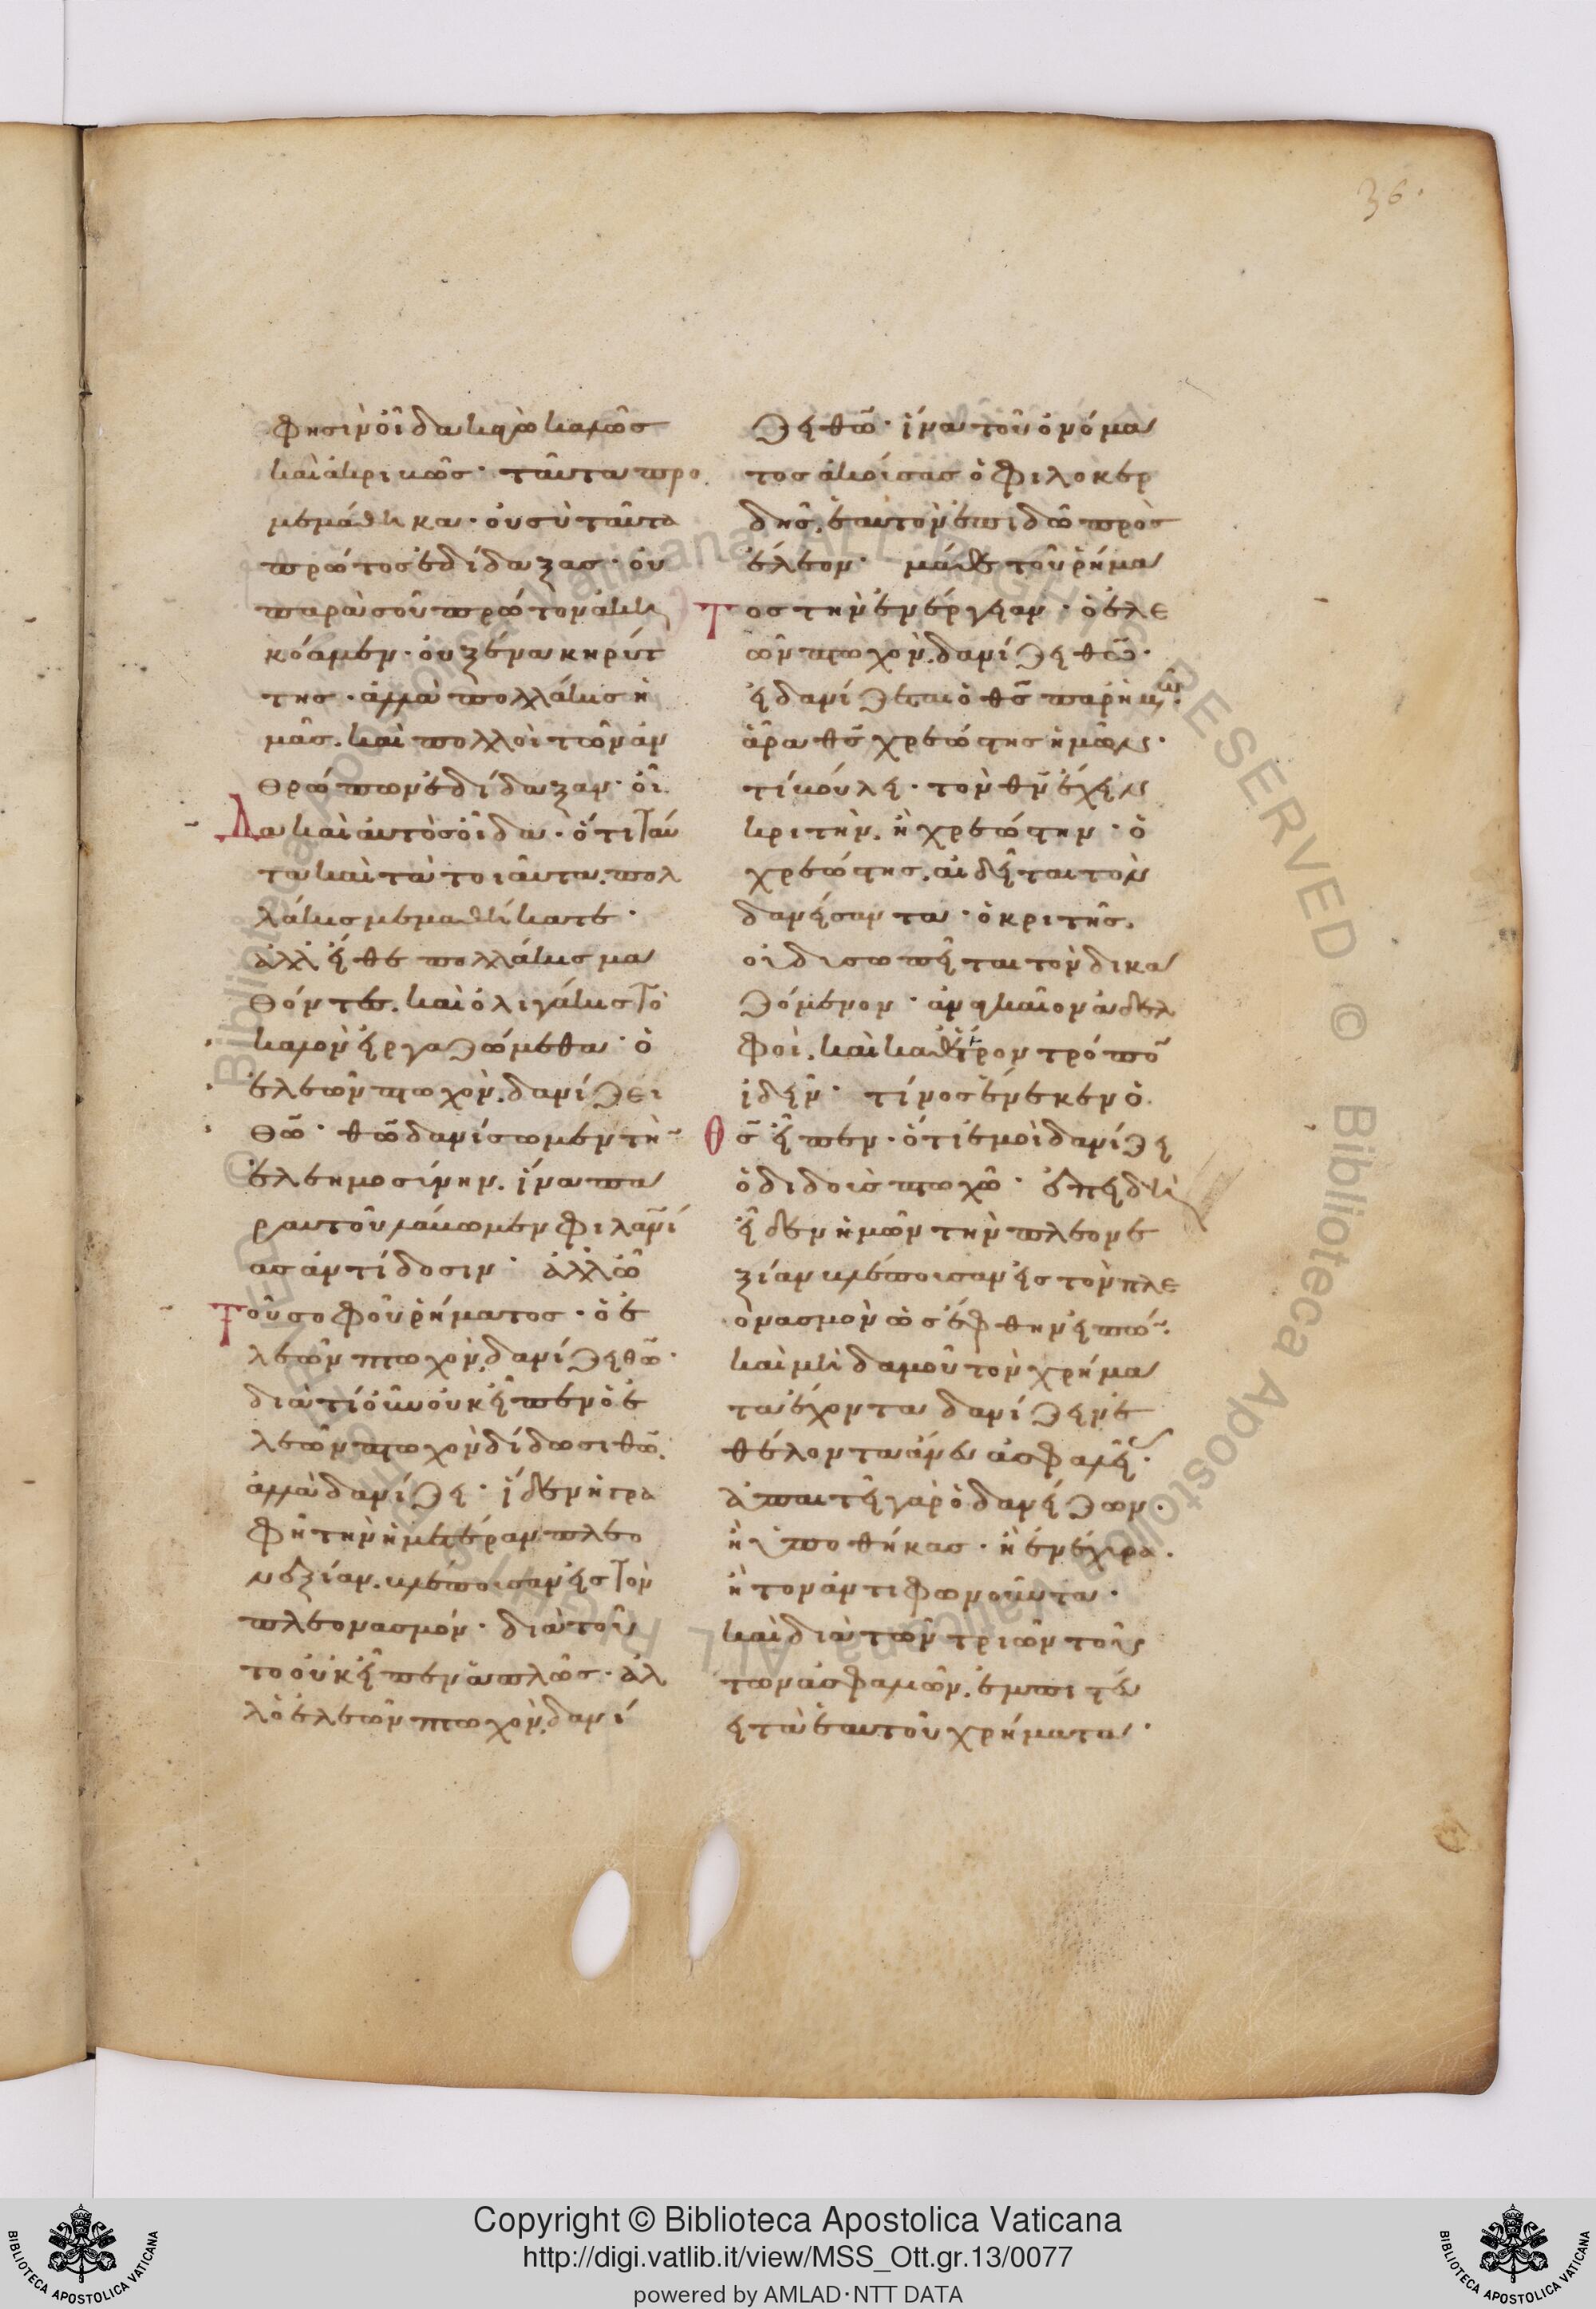 36.
φησὶν οἶδα κἀγὼ καλῶς
καὶ ἀκριβῶς· ταῦτα προ
μεμάθηκα· οὐ σὺ ταῦτα
πρῶτος ἐδίδαξας· οὐ
παρὰ σοῦ πρῶτον ἀκη
κόαμεν· οὐ ξένα κηρύτ
της· ἀλλὰ πολλάκις ἡ
μᾶς. καὶ πολλοὶ τῶν ἀν
θρώπων ἐδίδαξαν· οἶ
Δα καὶ αὐτὸς οἶδα· ὅτι ταῦ
τα καὶ τὰ τοιαῦτα. πολ
λάκις μεμαθήκατε·
ἀλλ' εἴθε πολλάκις μα
θόντες. καὶ ὀλιγάκις τὸ
καλὸν ἐργαζώμεθα· ὁ
ἐλεῶν πτωχὸν. δανίζει
θῶ· θῶ δανίσωμεν τὴν
ἐλεημοσύνην. ἵνα πα
ρ αὐτοῦ λάβωμεν φιλανί
ας ἀντίδοσιν· ἀλλ' ὢ
Τοῦ σοφοῦ ῥήματος· ὁ ἐ
λεῶν πτωχὸν. δανίζει θῶ·
διατί οὖν οὐκ εἶπεν ὁ ἐ
λεῶν πτωχὸν δίδωσι θῶ.
ἀλλὰ δανίζει· ἴδεν ἡ γρα
φὴ τὴν ἡμετέραν πλεο
νεξίαν. βλέποισαν εἰς τὸν
πλεονασμόν· διὰ τοῦ
το οὐκ εἶπεν ἁπλῶς· ἀλ
λ' ὁ ἐλεῶν πτωχὸν. δανί
ζει θῶ· ἵνα τοῦ ὀνόμα
τος ἀκοίσας ὁ φιλοκερ
δὴς. ἑαυτὸν ἐπιδῶ πρὸς
ἔλεον· μάθε τοῦ ῥήμα
Τος τὴν ἐνέργειαν· ὁ ἐλε
ῶν πτωχὸν. δανίζει θῶ·
εἰ δανίζεται ὁ θς παρ' ἡμῶν·
ἄρα θς χρεώστης ἡμῶν·
τί βούλει· τὸν θν ἔχειν
κριτὴν. ἢ χρεώστην· ὁ
χρεώστης. αἰδεῖται τὸν
δανείσαντα· ὁ κριτὴς.
οὐ δισωπεῖται τὸν δικα
ζόμενον· ἀναγκαῖον ἀδελ
φοὶ. καὶ καθ' ἕτερον τρόπον
ἰδεῖν· τίνος ἕνεκεν ὁ
Θς εἶπεν· ὅτι ἐμοὶ δανίζει
ὁ διδοὺς πτωχῶ· ἐπειδὴ
εἶδεν ἡμῶν τὴν πλεονε
ξίαν βλέποισαν εἰς τὸν πλε
ονασμὸν ὡς ἔφθην εἰπών·
καὶ μὴ δαμοῦ τὸν χρήμα
τα ἔχοντα δανίζειν ἐ
θέλοντα ἄνευ ἀσφαλεί·
ἀπαιτεῖ γὰρ ὁ δανείζων·
ἢ ὑποθήκας· ἢ ἐνέχυρα·
ἢ τὸν ἀντιφωνοῦντα·
καὶ διὰ τῶν τριῶν τού
των ἀσφαλῶν. ἐμπιστεύ
ει τὰ ἑαυτοῦ χρήματα·
Copyright © Biblioteca Apostolica Vaticana
http://digi.vatlib.it/view/MSS_Ott.gr.13/0077
powered by AMLAD·NTT DATA